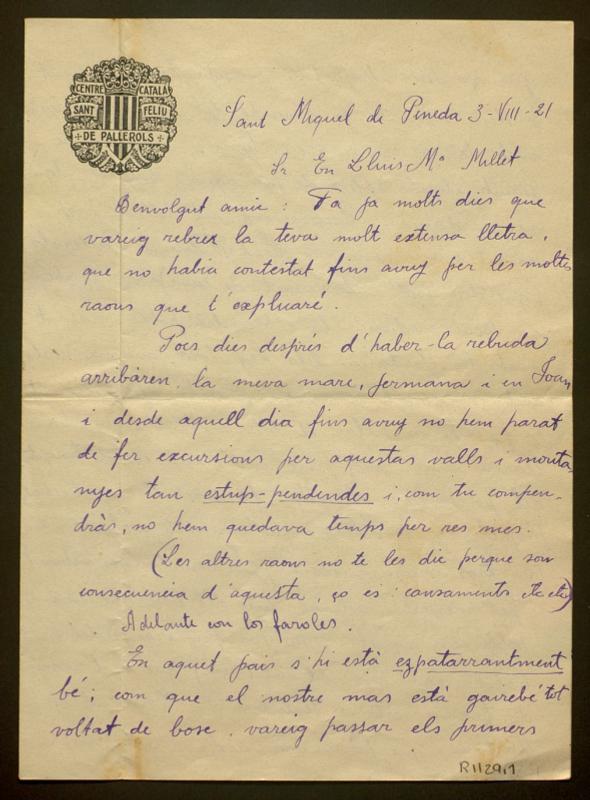 CENTRE CATALÀ
SANT FELIU
DE PALLEROLS
Sant Miquel de Pineda 3-VIII-21
Sr. En Lluis Mª Millet
Benvolgut amic: Fa ja molts dies que
vareig rebrer la teva molt extensa lletra,
que no habia contestat fins avuy per les moltes
raons que t'expluaré.
Pocs dies després d'haber-la rebuda
arribàren la meva mare, germana i en Joan
i desde aquell dia fins avuy no hem parat
de fer excursions per aquestas valls i monta-
nyes tan estup-pendendes i, com tu compen-
dràs, no hem quedava temps per res mes.
(Les altres raons no te les dic perque son
consecuencia d'aquesta, ço es: cansaments etc etc)
Adelante con los faroles.
En aquet pais s'hi està ezpatarrantment
bé; com que el nostre mas està gairebé tot
voltat de bosc, vareig passar els primers
R1129,1